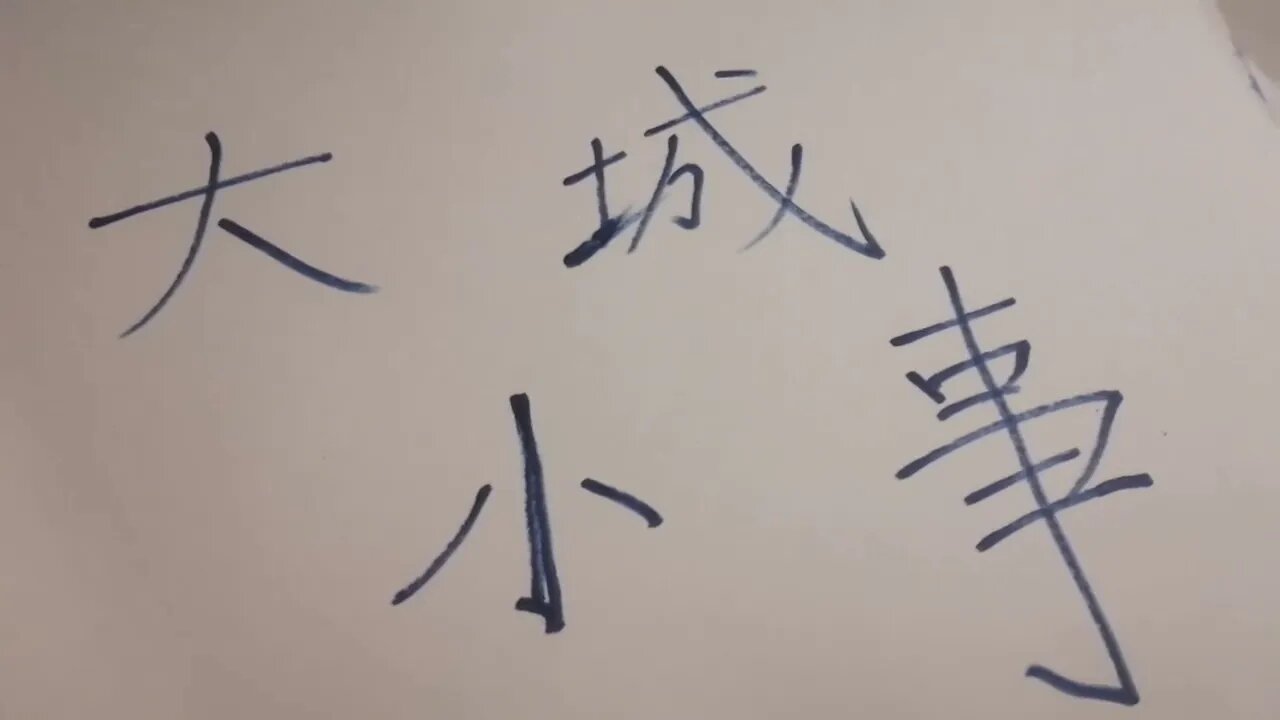 大城
小事